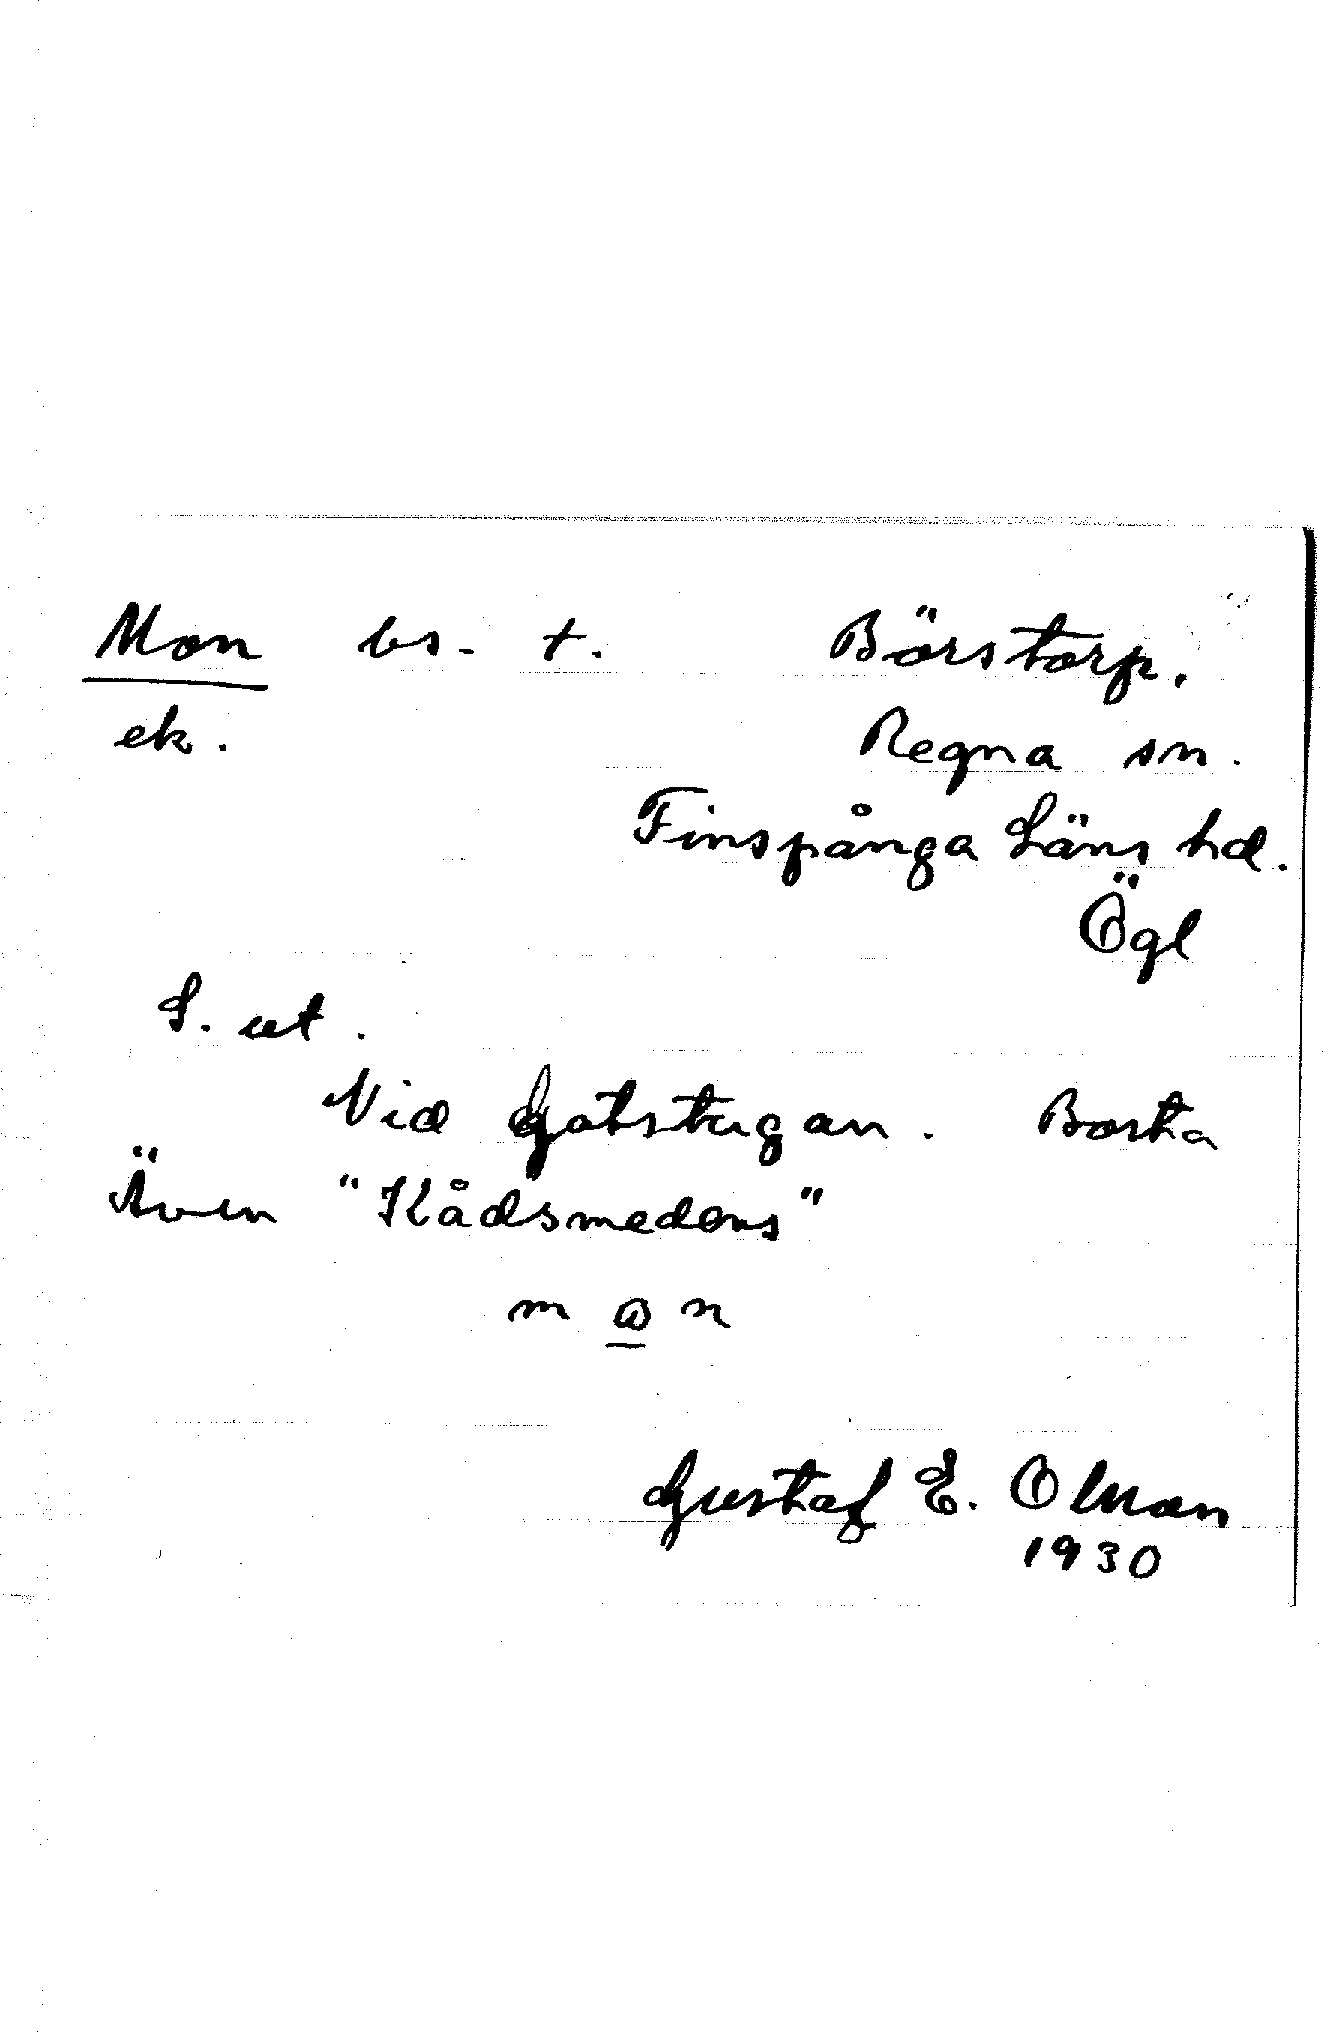 Mon bs. t. Börstorp.
ek. Regna sn.
Finspånga Läns hd.
Ögl
S. ut.
Vid Gatstugan. Borta
Även "Klådsmedens"
m o n
Gustaf E. Olman
1930